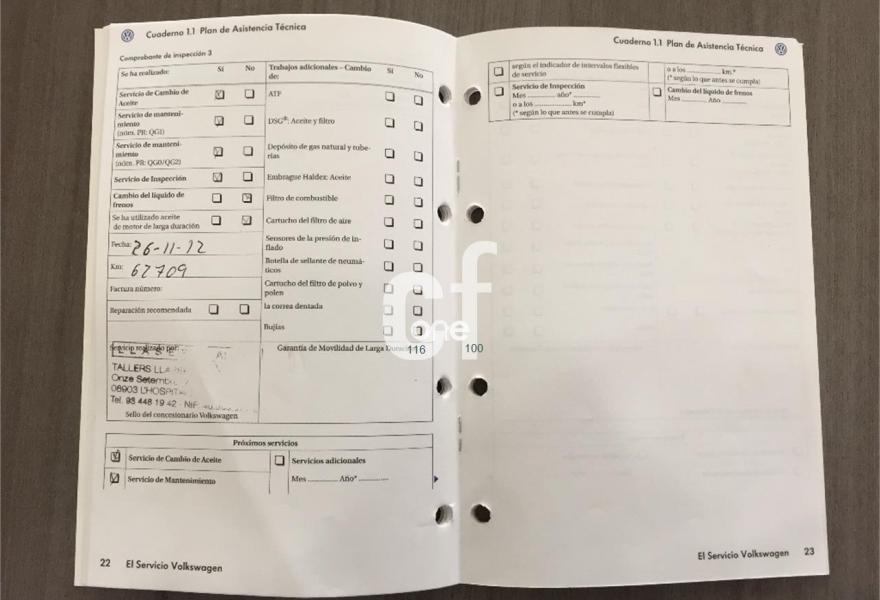 Cuaderno 1.1 Plan de Asistencia Técnica
Comprobante de inspección 3
Se ha realizado: Sí No
Servicio de Cambio de
Aceite
Servicio de manteni-
miento
(núm. PR: QG1)
Servicio de manteni-
miento
(núm. PR: QG0/QG2)
Servicio de Inspección
Cambio del líquido de
frenos
Se ha utilizado aceite
de motor de larga duración
Fecha: 26-11-12
Km: 62709
Factura número:
Reparación recomendada
Trabajos adicionales – Cambio
de: Sí No
ATF
DSG®: Aceite y filtro
Depósito de gas natural y tube-
rías
Embrague Haldex: Aceite
Filtro de combustible
Cartucho del filtro de aire
Sensores de la presión de in-
flado
Botella de sellante de neumá-
ticos
Cartucho del filtro de polvo y
polen
la correa dentada
Bujías
Servicio realizado por:
TALLERS
Onze Setemb
08903 L'HOSPIT
Tel. 93 448 19 42 - NIF:
Sello del concesionario Volkswagen
Garantía de Movilidad de Larga
116
Próximos servicios
Servicio de Cambio de Aceite
Servicio de Mantenimiento
Servicios adicionales
Mes Año*
22 El Servicio Volkswagen
cf
one
Cuaderno 1.1 Plan de Asistencia Técnica
según el indicador de intervalos flexibles
de servicio
Servicio de Inspección
Mes año*
o a los km*
(* según lo que antes se cumpla)
o a los km*
(* según lo que antes se cumpla)
Cambio del líquido de frenos
Mes Año
100
El Servicio Volkswagen 23